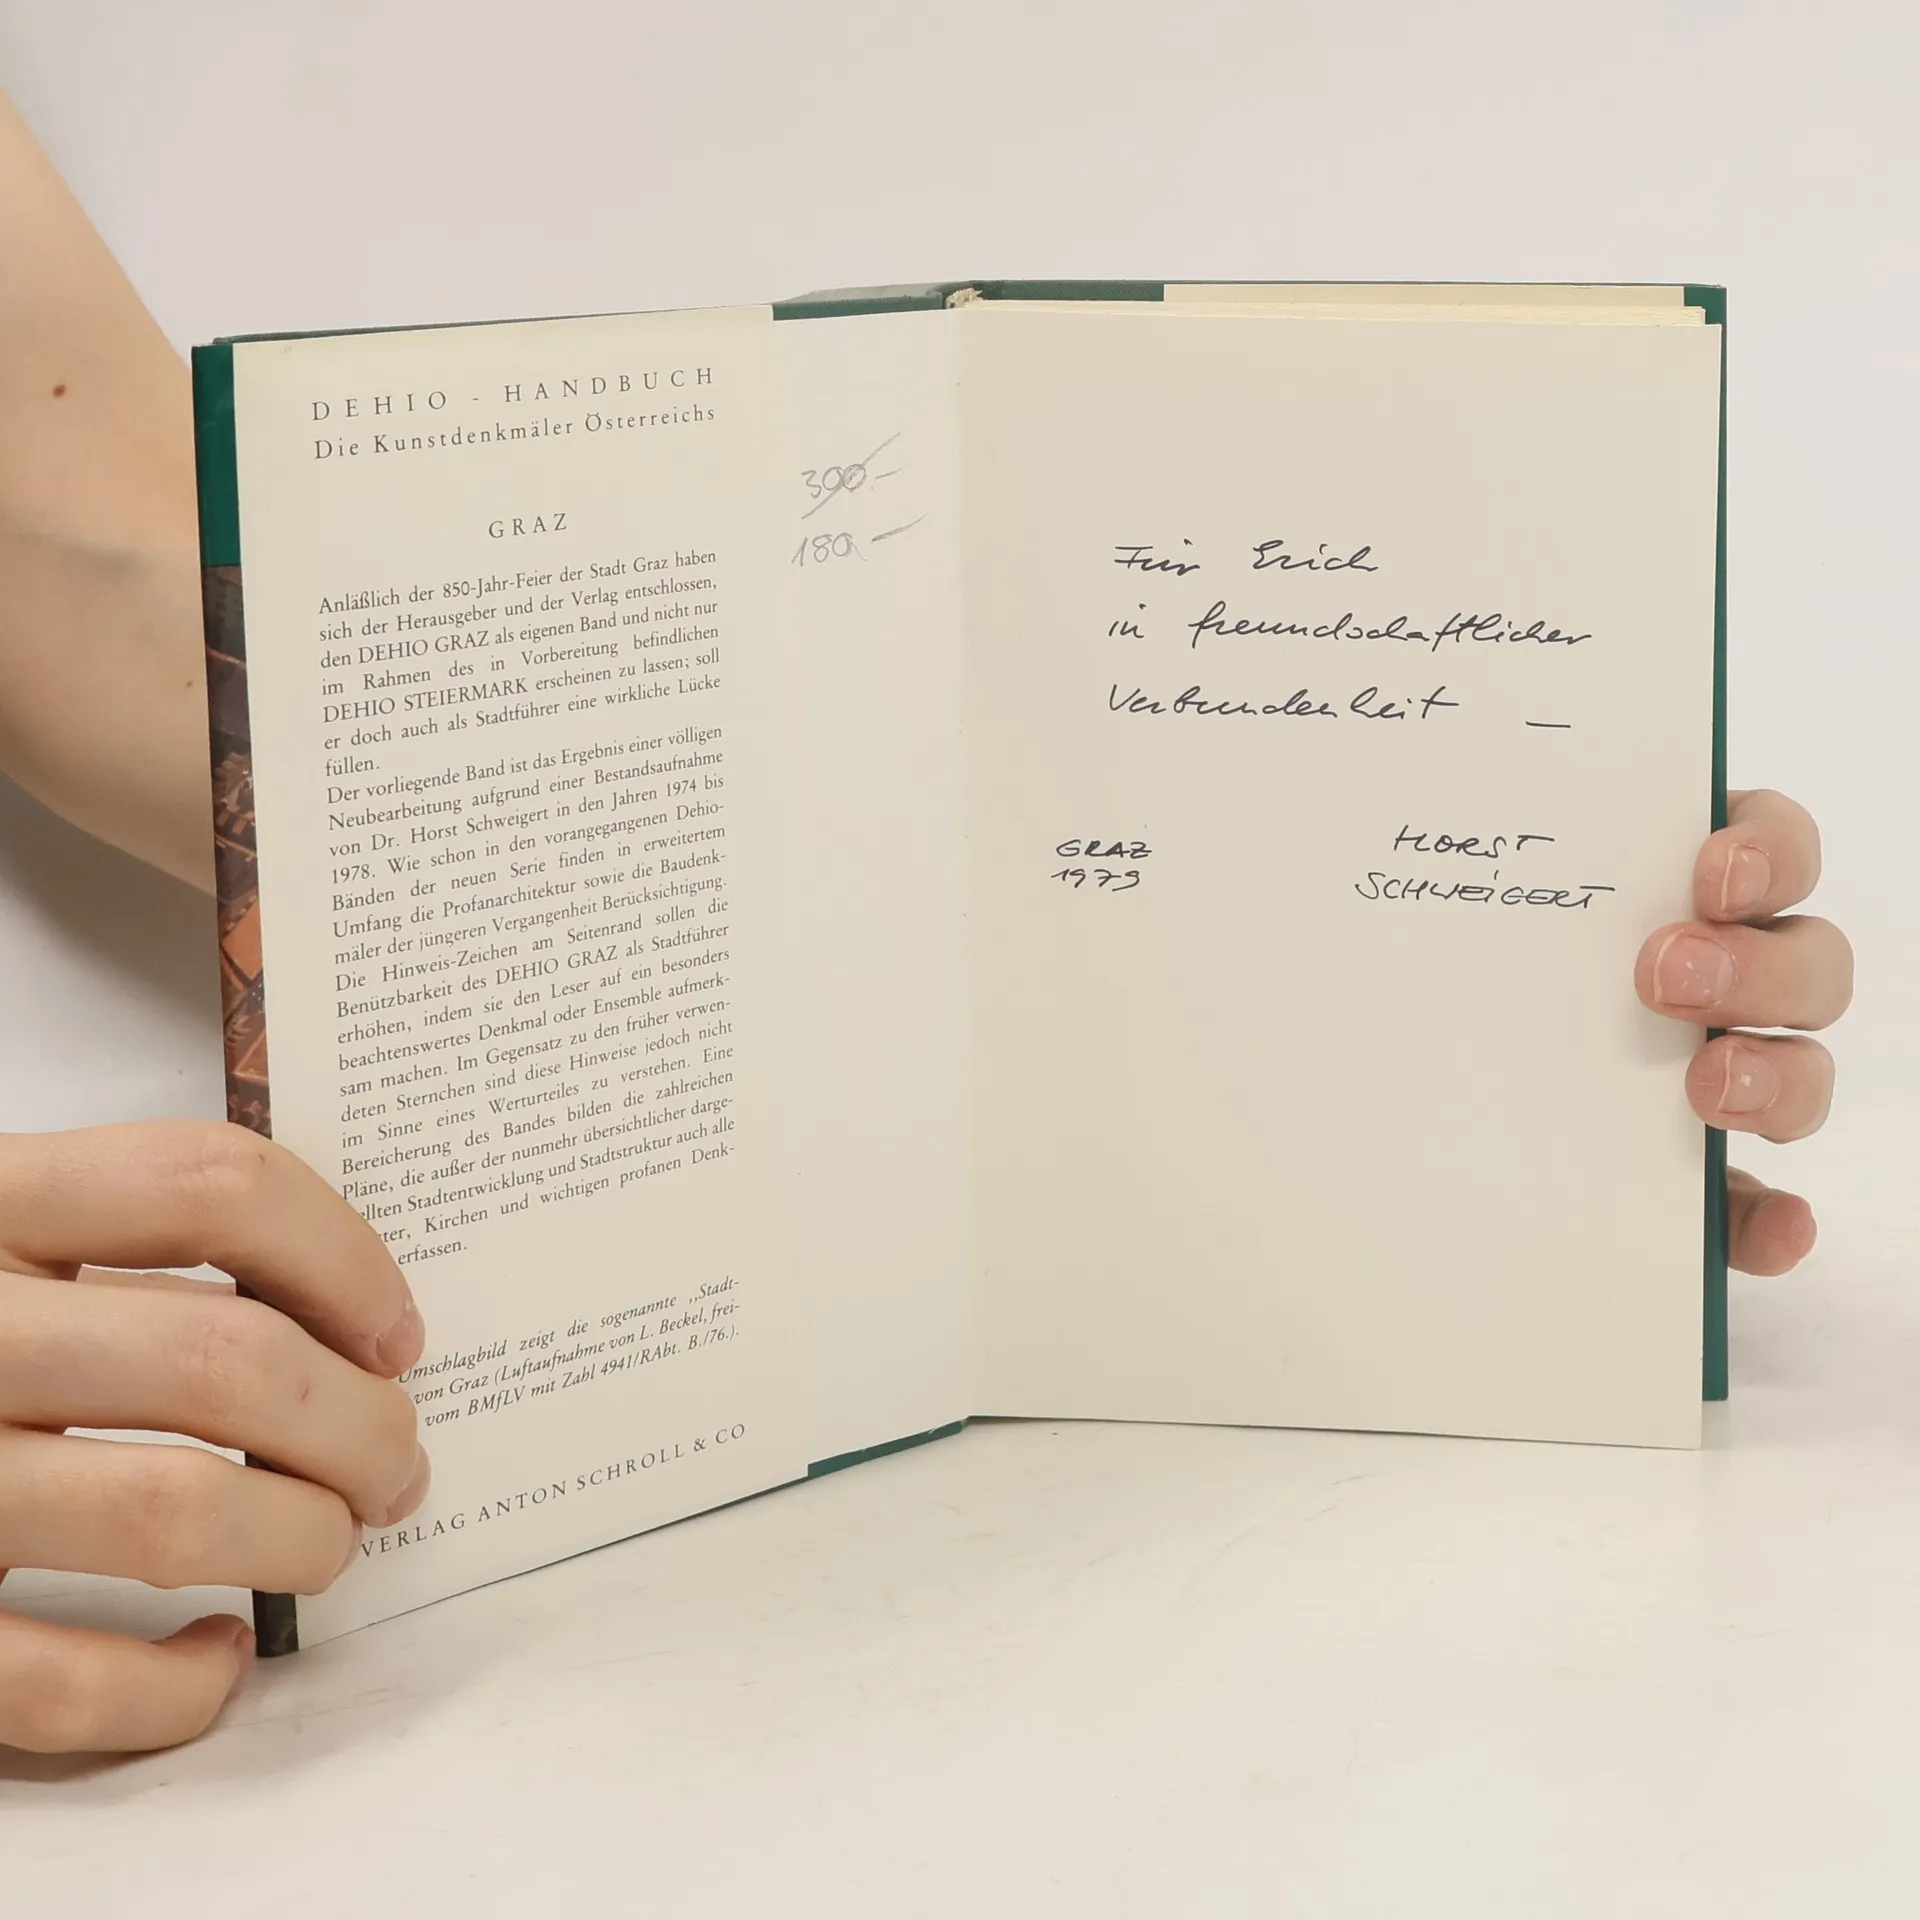 DEHIO - HANDBUCH
Die Kunstdenkmäler Österreichs
GRAZ
Anläßlich der 850-Jahr-Feier der Stadt Graz haben
sich der Herausgeber und der Verlag entschlossen,
den DEHIO GRAZ als eigenen Band und nicht nur
im Rahmen des in Vorbereitung befindlichen
DEHIO STEIERMARK erscheinen zu lassen; soll
er doch auch als Stadtführer eine wirkliche Lücke
füllen.
Der vorliegende Band ist das Ergebnis einer völligen
Neubearbeitung aufgrund einer Bestandsaufnahme
von Dr. Horst Schweigert in den Jahren 1974 bis
1978. Wie schon in den vorangegangenen Dehio-
Bänden der neuen Serie finden in erweitertem
Umfang die Profanarchitektur sowie die Baudenk-
mäler der jüngeren Vergangenheit Berücksichtigung.
Die Hinweis-Zeichen am Seitenrand sollen die
Benützbarkeit des DEHIO GRAZ als Stadtführer
erhöhen, indem sie den Leser auf ein besonders
beachtenswertes Denkmal oder Ensemble aufmerk-
sam machen. Im Gegensatz zu den früher verwen-
deten Sternchen sind diese Hinweise jedoch nicht
im Sinne eines Werturteiles zu verstehen. Eine
Bereicherung des Bandes bilden die zahlreichen
Pläne, die außer der nunmehr übersichtlicher darge-
ellten Stadtentwicklung und Stadtstruktur auch alle
ter, Kirchen und wichtigen profanen Denk-
erfassen.
Umschlagbild zeigt die sogenannte „Stadt-
von Graz (Luftaufnahme von L. Beckel, frei-
vom BMfLV mit Zahl 4941/RAbt. B./76.).
VERLAG ANTON SCHROLL & CO
300.-
180.-
Für Erich
in freundschaftlicher
Verbundenheit —
GRAZ
1979
HORST
SCHWEIGERT